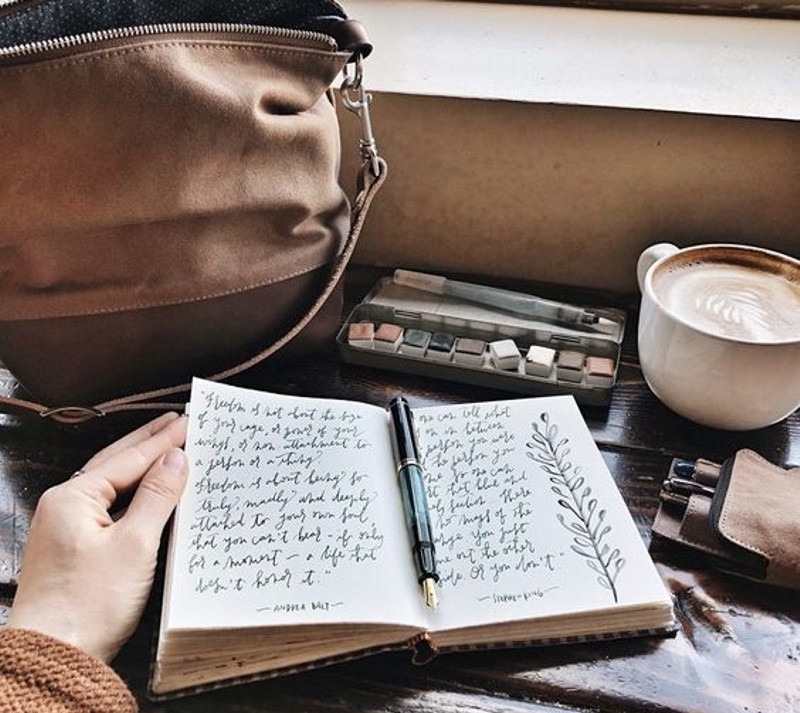 "Freedom is not about the size
of your cage, or power of your
wings, or non attachment to
a person or a thing.
Freedom is about being so
truly, madly and deeply
attached to your own soul
that you can't bear - if only
for a moment - a life that
doesn't honor it."
- ANDREA BALT -
one can tell what
on in between
person you were
the person you
me. No one can
that blue and
section. There
no maps of the
change. You just
me out the other
side. Or you don't."
- STEPHEN KING -